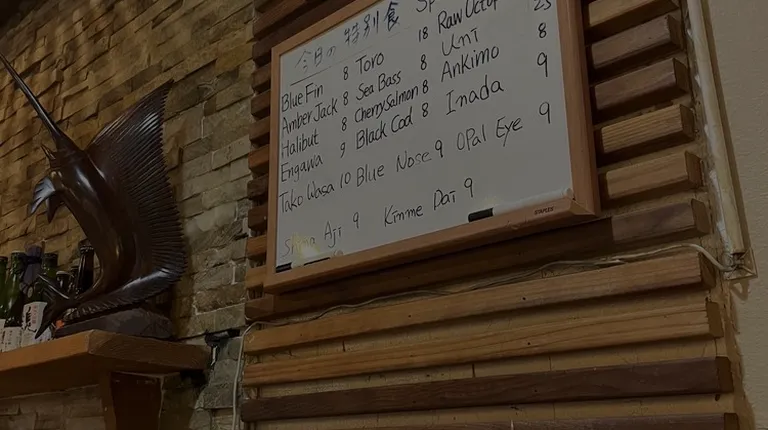 今日の特別食
Blue Fin 8 Toro 18 Raw
Amber Jack 8 Sea Bass 8 Uni
Halibut 8 Cherry Salmon 8 Ankimo 8
Engawa 9 Black Cod 8 Inada 9
Tako Wasa 10 Blue Nose 9 Opal Eye 9
Shima Aji 9 Kinme Dai 9
STAPLES